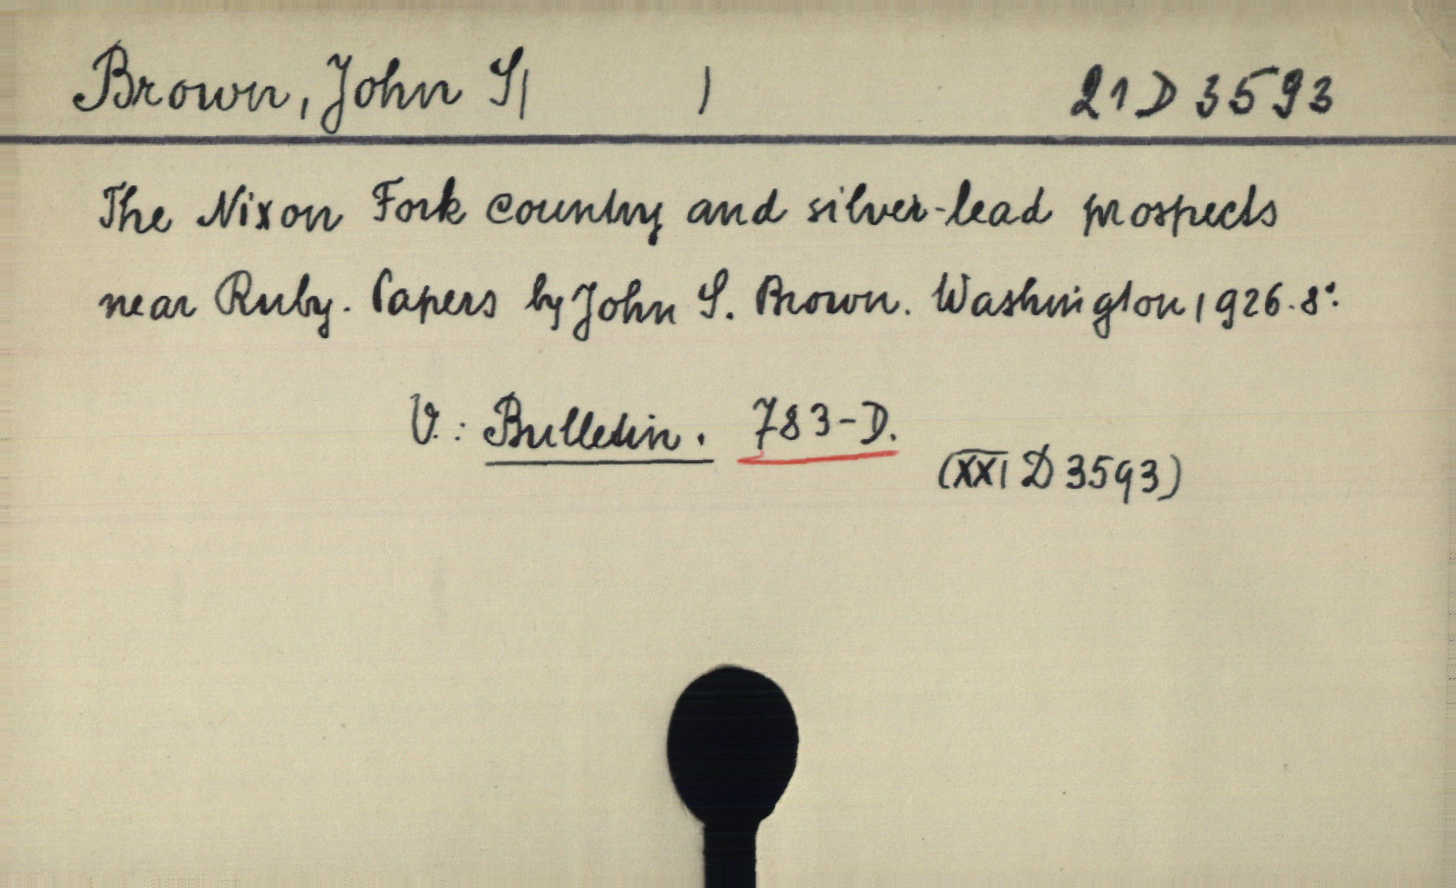 Brown, John S( ) 21 D 3593
The Nixon Fork country and silver-lead prospects
near Ruby. Papers by John S. Brown. Washington 1926. 8°.
V.: Bulletin. 783-D.
(XXI D 3593)